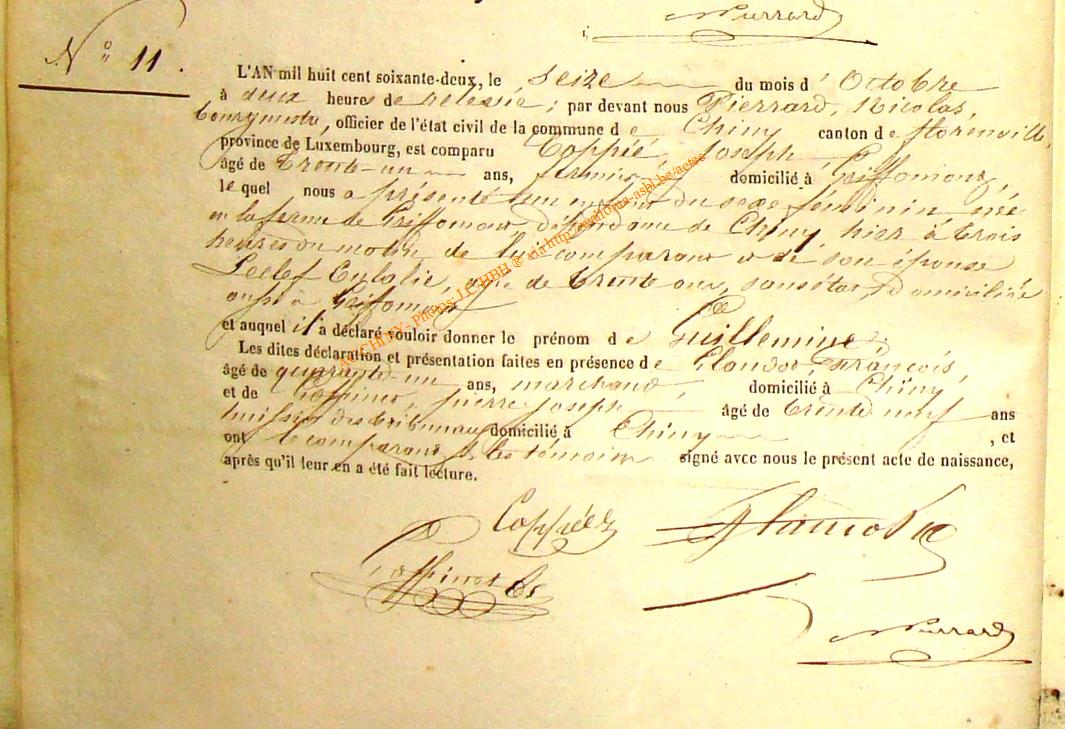 Pierrard
N° 11.
L'AN mil huit cent soixante-deux, le seize du mois d' Octobre
à deux heures de relevée ; par devant nous Pierrard, Nicolas,
bourgmestre, officier de l'état civil de la commune de Chiny canton de florenville,
province de Luxembourg, est comparu Coppée, Joseph,
âgé de trente-un ans, fermier domicilié à Griffomont,
le quel nous a présenté un enfant du sexe féminin née
en la ferme de Griffomont dépendance de Chiny hier à trois
heures du matin de lui comparant et de son épouse
Leclef Eulalie, âgée de trente ans, sans état, domiciliée
aussi à Griffomont
et auquel il a déclaré vouloir donner le prénom de Guillemine.
Les dites déclaration et présentation faites en présence de François,
âgé de quarante-un ans, marchand, domicilié à Chiny
et de Goffinet, pierre Joseph âgé de trente neuf ans
huissier des tribunaux domicilié à Chiny , et
ont le comparant et les témoins signé avec nous le présent acte de naissance,
après qu'il leur en a été fait lecture.
Coppée
Goffinet
Pierrard
AC CHINY - Photos LCHBH @ via http://www.luxroots-asbl.be/actes